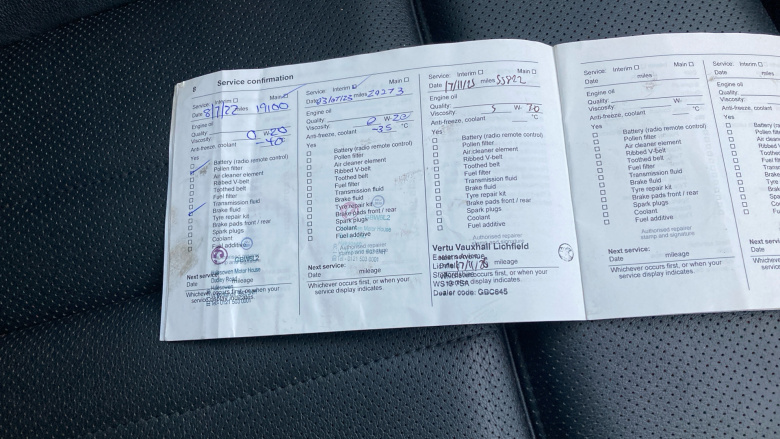 8
Service confirmation
Service: Interim ☐ Main ☐
Date 8/7/22 miles 19100
Engine oil
Quality:
Viscosity: 0 W- 20
Anti-freeze, coolant -40
Yes
☐ Battery (radio remote control)
☐ Pollen filter
☐ Air cleaner element
☐ Ribbed V-belt
☐ Toothed belt
☐ Fuel filter
☐ Transmission fluid
☐ Brake fluid
☐ Tyre repair kit
☐ Brake pads front / rear
☐ Spark plugs
☐ Coolant
additive
Next service:
Date mileage
Whichever occurs first, or when your
service display indicates.
Service: Interim ☐ Main ☐
Date 03/07/23 miles 29273
Engine oil
Quality:
Viscosity: 0 W- 20
Anti-freeze, coolant -35 °C
Yes
☐ Battery (radio remote control)
☐ Pollen filter
☐ Air cleaner element
☐ Ribbed V-belt
☐ Toothed belt
☐ Fuel filter
☐ Transmission fluid
☐ Brake fluid
☐ Tyre repair kit
☐ Brake pads front / rear
☐ Spark plugs
☐ Coolant
☐ Fuel additive
Authorised repairer
stamp and signature
Next service:
Date mileage
Whichever occurs first, or when your
service display indicates.
Service: Interim ☐ Main ☐
Date 17/11/25 miles 55822
Engine oil
Quality:
Viscosity: 5 W-
Anti-freeze, coolant °C
Yes
☐ Battery (radio remote control)
☐ Pollen filter
☐ Air cleaner element
☐ Ribbed V-belt
☐ Toothed belt
☐ Fuel filter
☐ Transmission fluid
☐ Brake fluid
☐ Tyre repair kit
☐ Brake pads front / rear
☐ Spark plugs
☐ Coolant
☐ Fuel additive
Authorised repairer
stamp and signature
Vertu Vauxhall Lichfield
Eastern Avenue
mileage
Whichever occurs first, or when your
service display indicates.
Dealer code: GBC645
Service: Interim ☐ Main ☐
Date miles
Engine oil
Quality:
Viscosity: W-
Anti-freeze, coolant °C
Yes
☐ Battery (radio remote control)
☐ Pollen filter
☐ Air cleaner element
☐ Ribbed V-belt
☐ Toothed belt
☐ Fuel filter
☐ Transmission fluid
☐ Brake fluid
☐ Tyre repair kit
☐ Brake pads front / rear
☐ Spark plugs
☐ Coolant
☐ Fuel additive
Authorised repairer
stamp and signature
Next service:
Date mileage
Whichever occurs first, or when your
service display indicates.
Service: Interim ☐
Date miles
Engine oil
Quality:
Viscosity:
Anti-freeze, coolant
Yes
☐ Battery
☐ Pollen
☐ Air
☐ Ribbed
☐ Fuel
☐ Tyre
Next service:
Date mileage
Whichever occurs first, or
service display indicates.